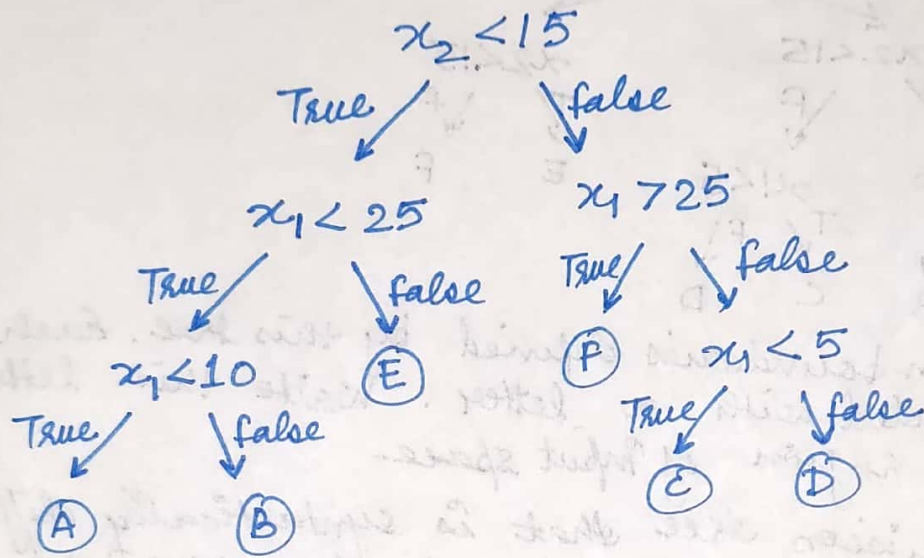 x₂ < 15
True false
x₁ < 25 x₁ > 25
True false True false
x₁ < 10 E F x₁ < 5
True false True false
A B C D